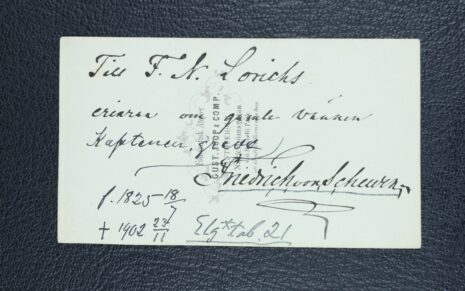 Till F. N. Lorichs
erinran om gamle vännen
Kaptenen, greve
Friedrich von Schewen
f. 1825 18/7
† 1902 23/11 Elg* tab. 21
GUST. JOOP & COMP.